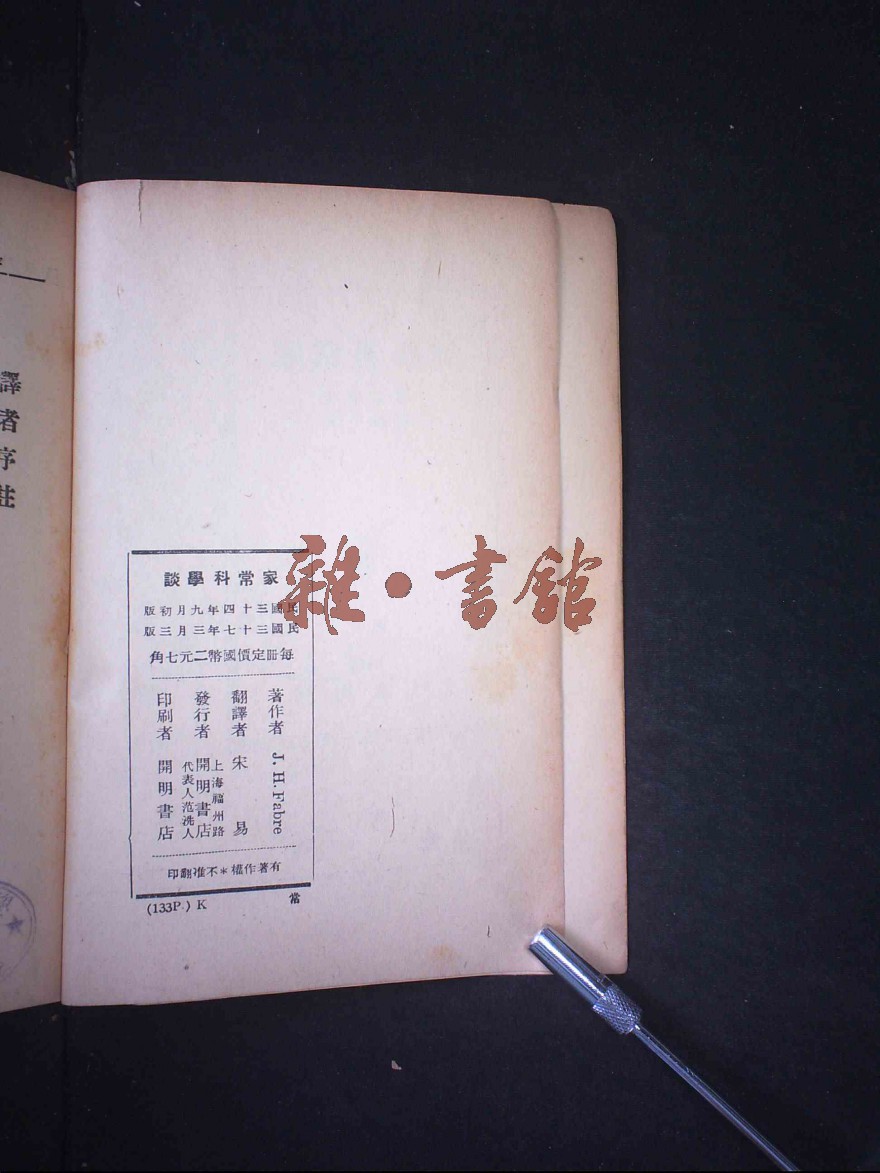 譯者序註
雜·書館
家常科學談
民國三十四年九月初版
民國三十七年三月三版
每冊定價國幣二元七角
著作者 J. H. Fabre
翻譯者 宋易
發行者 開明書店
上海福州路
代表人范洗人
印刷者 開明書店
有著作權＊不准翻印
(133P.) K
常